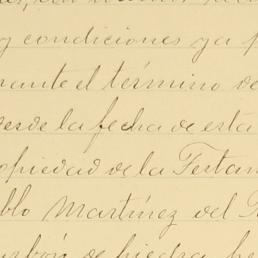 y condiciones ya p
rante el término de
esde la fecha de esta
opiedad de la Testam
blo Martínez del R
urbón de piedra, he